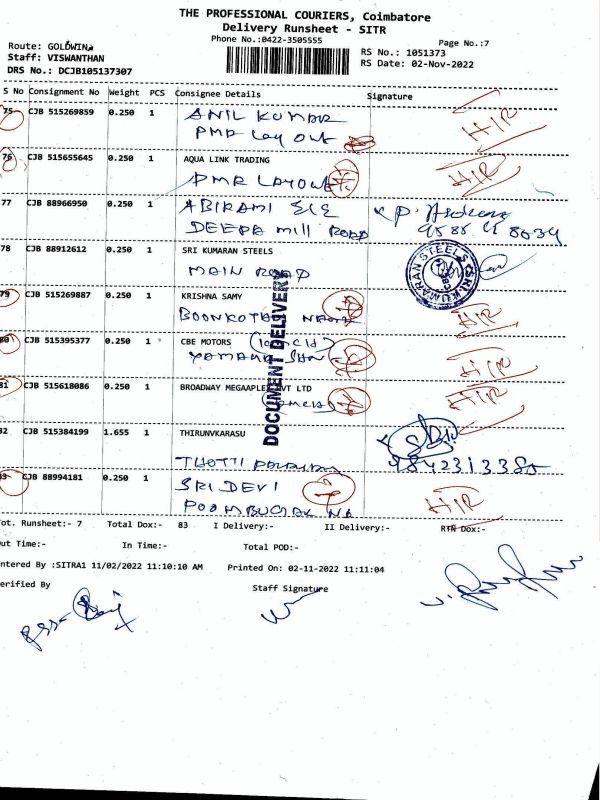 THE PROFESSIONAL COURIERS, Coimbatore
Delivery Runsheet - SITR
Phone No.:0422-3505555
Page No.:7
Route: GOLDWINS
Staff: VISWANTHAN
DRS No.: DCJB105137307
RS No.: 1051373
RS Date: 02-Nov-2022
S No Consignment No Weight PCS Consignee Details Signature
75 CJB 515269859 0.250 1 ANIL KUMAR
PMR Lay out
HIR
76 CJB 515655645 0.250 1 AQUA LINK TRADING
PMR LAYOUT
HIR
77 CJB 88966950 0.250 1 ABIRAMI
DEEPA mill ROAD
78 CJB 88912612 0.250 1 SRI KUMARAN STEELS
MAIN ROAD
SRI KUMARAN STEELS
79 CJB 515269887 0.250 1 KRISHNA SAMY
HIR
80 CJB 515395377 0.250 1 CBE MOTORS
YAMAHA
HIR
81 CJB 515618086 0.250 1 BROADWAY MEGAAPLE PVT LTD
HIR
DOCUMENT DELIVERY
82 CJB 515384199 1.655 1 THIRUNVKARASU
THOTTI
83 CJB 88994181 0.250 1 SRI DEVI
HIR
Tot. Runsheet:- 7 Total Dox:- 83 I Delivery:- II Delivery:- RTN Dox:-
Out Time:- In Time:- Total POD:-
Entered By :SITRA1 11/02/2022 11:10:10 AM Printed On: 02-11-2022 11:11:04
Verified By Staff Signature